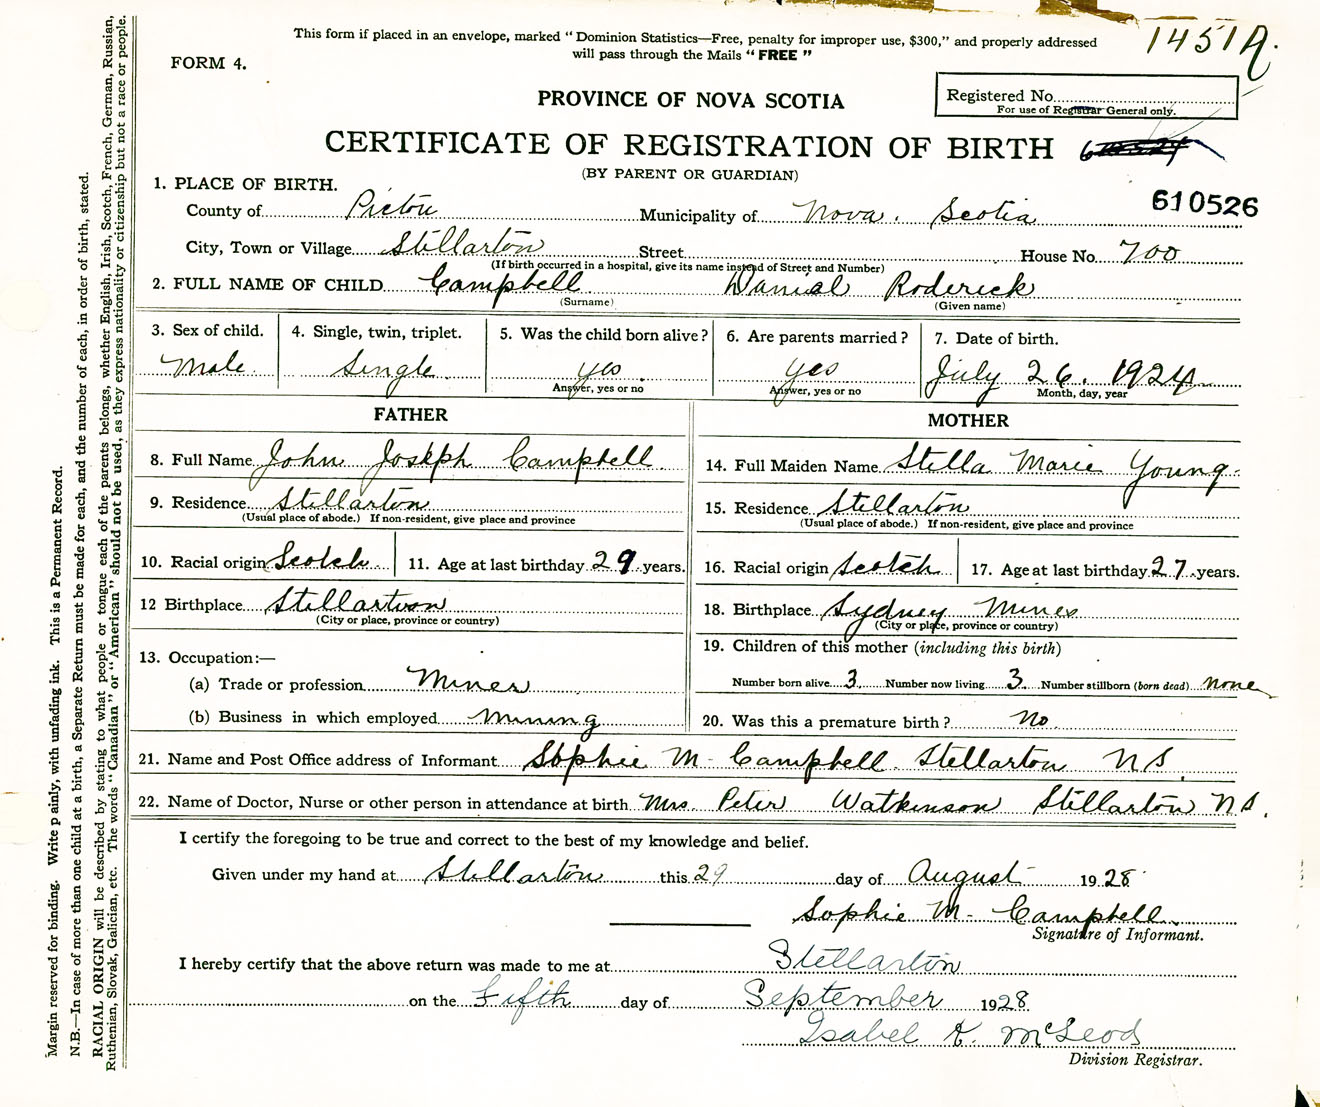 This form if placed in an envelope, marked "Dominion Statistics—Free, penalty for improper use, $300," and properly addressed
will pass through the Mails "FREE"
1451A.
FORM 4.
Registered No.
For use of Registrar General only.
PROVINCE OF NOVA SCOTIA
CERTIFICATE OF REGISTRATION OF BIRTH
(BY PARENT OR GUARDIAN)
610526
1. PLACE OF BIRTH.
County of Pictou Municipality of Nova. Scotia
City, Town or Village Stellarton Street House No. 700
(If birth occurred in a hospital, give its name instead of Street and Number)
2. FULL NAME OF CHILD Campbell Danial Roderick
(Surname) (Given name)
3. Sex of child. 4. Single, twin, triplet. 5. Was the child born alive? 6. Are parents married? 7. Date of birth.
Male Single yes yes July 26, 1924
Answer, yes or no Answer, yes or no Month, day, year
FATHER MOTHER
8. Full Name John Joseph Campbell 14. Full Maiden Name Stella Marie Young
9. Residence Stellarton 15. Residence Stellarton
(Usual place of abode.) If non-resident, give place and province (Usual place of abode.) If non-resident, give place and province
10. Racial origin Scotch 11. Age at last birthday 29 years. 16. Racial origin Scotch 17. Age at last birthday 27 years.
12 Birthplace Stellartoon 18. Birthplace Sydney Mines
(City or place, province or country) (City or place, province or country)
13. Occupation:— 19. Children of this mother (including this birth)
(a) Trade or profession Miner Number born alive 3 Number now living 3 Number stillborn (born dead) none
(b) Business in which employed Mining 20. Was this a premature birth? No
21. Name and Post Office address of Informant Sophie M Campbell Stellarton N S.
22. Name of Doctor, Nurse or other person in attendance at birth Mrs. Peter Watkinson Stellarton N.S.
I certify the foregoing to be true and correct to the best of my knowledge and belief.
Given under my hand at Stellarton this 29 day of August 1928
Sophie M. Campbell
Signature of Informant.
I hereby certify that the above return was made to me at Stellarton
on the Fifth day of September 1928
Isabel K. McLeod
Division Registrar.
Margin reserved for binding. Write p ainly, with unfading ink. This is a Permanent Record.
N.B.—In case of more than one child at a birth, a Separate Return must be made for each, and the number of each, in order of birth, stated.
RACIAL ORIGIN will be described by stating to what people or tongue each of the parents belongs, whether English, Irish, Scotch, French, German, Russian,
Ruthenian, Slovak, Galician, etc. The words "Canadian" or "American" should not be used, as they express nationality or citizenship but not a race or people.